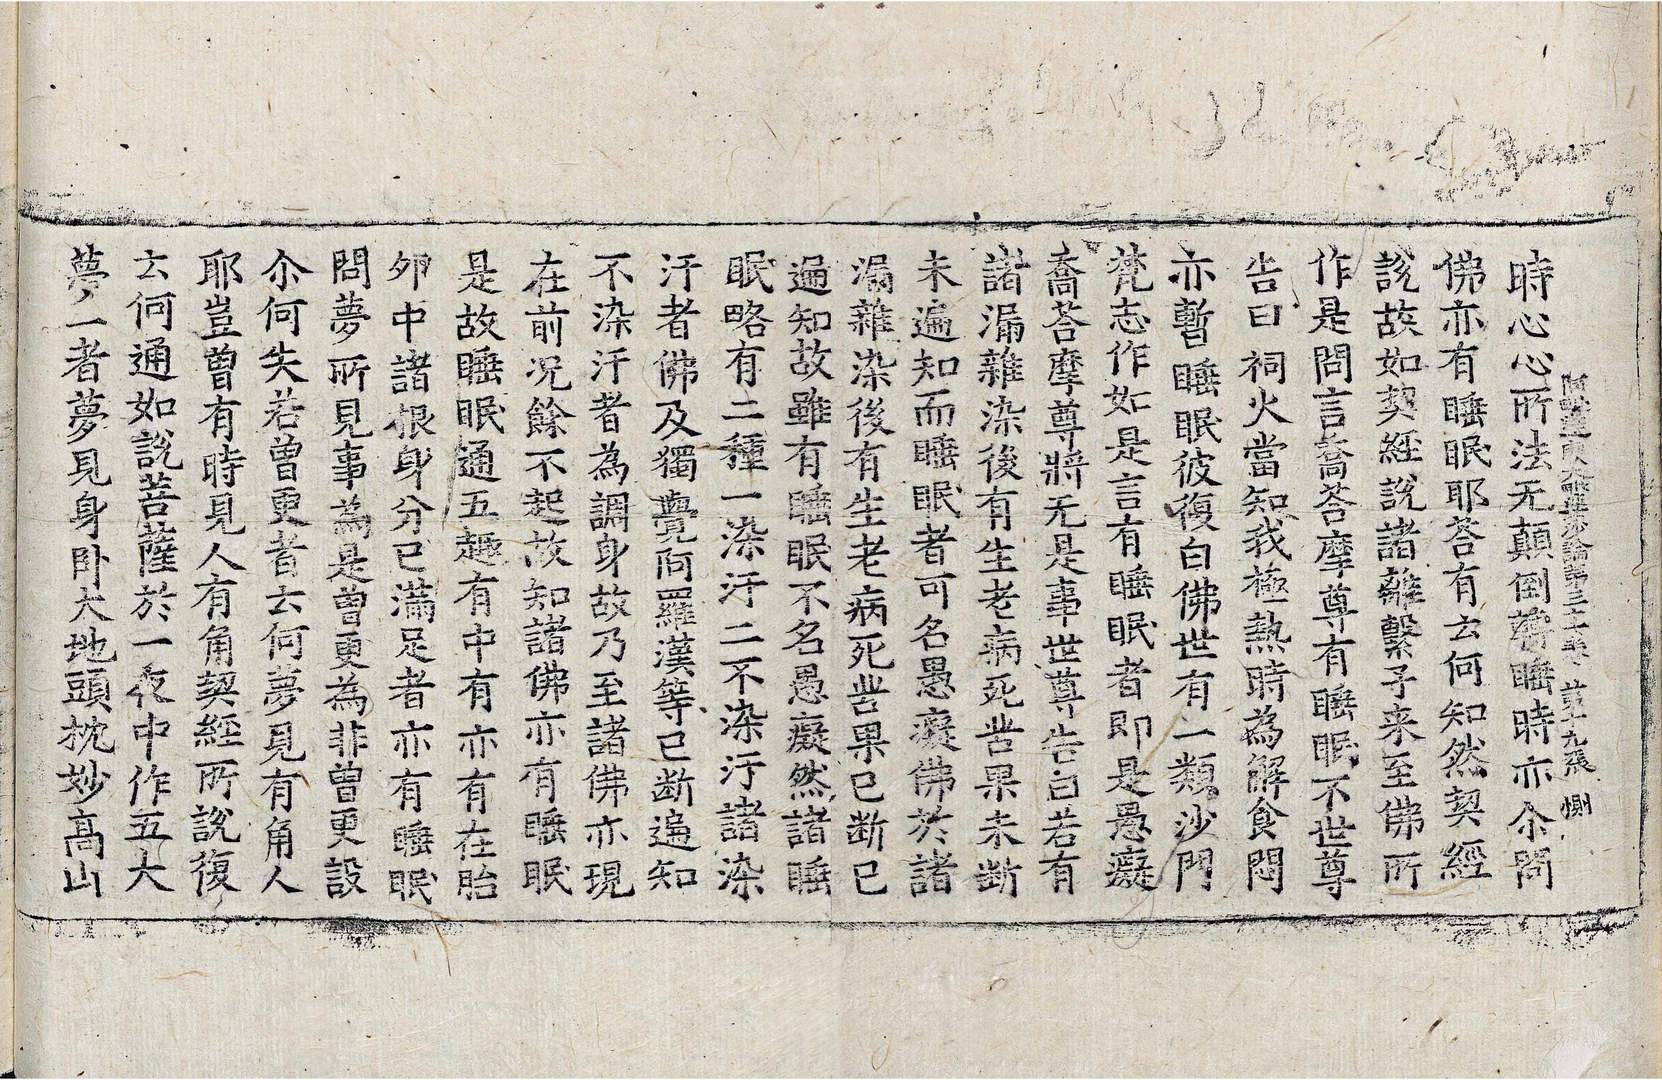 阿毗達磨大毗婆沙論第三十七卷 第十九張 惻
時心心所法无顛倒轉睡時亦尒問
佛亦有睡眠耶荅有云何知然契經
說故如契經說諸離繫子来至佛所
作是問言喬荅摩尊有睡眠不世尊
告曰祠火當知我極熱時為解食悶
亦暫睡眠彼復白佛世有一類沙門
梵志作如是言有睡眠者即是愚癡
喬荅摩尊將无是事世尊告曰若有
諸漏雜染後有生老病死苦果未断
未遍知而睡眠者可名愚癡佛於諸
漏雜染後有生老病死苦果已断已
遍知故雖有睡眠不名愚癡然諸睡
眠略有二種一染汙二不染汙諸染
汙者佛及獨覺阿羅漢等已断遍知
不染汙者為調身故乃至諸佛亦現
在前况餘不起故知諸佛亦有睡眠
是故睡眠通五趣有中有亦有在胎
夘中諸根身分已滿足者亦有睡眠
問夢所見事為是曾更為非曾更設
尒何失若曾更者云何夢見有角人
耶豈曾有時見人有角契經所說復
云何通如說菩薩於一夜中作五大
夢一者夢見身卧大地頭枕妙高山